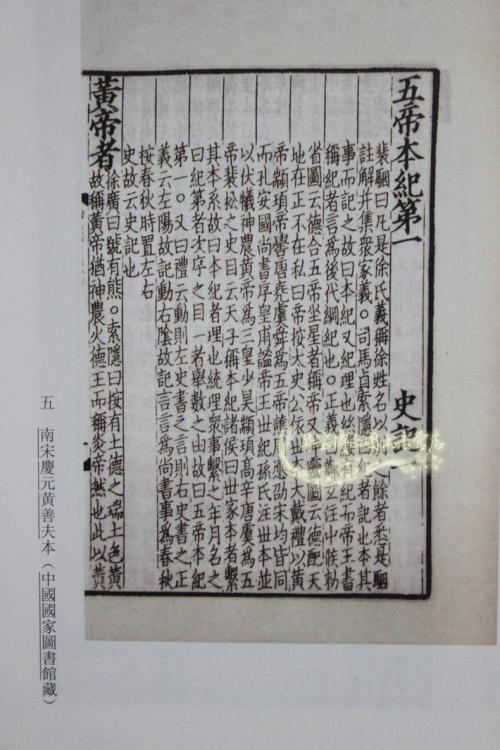 五帝本紀第一 史記一
裴駰曰凡是徐氏義稱徐姓名以別之餘者悉是駰
註解并集衆家義。司馬貞索隱曰紀者記也本其
事而記之故曰本紀又紀理也絲縷有紀而帝王書
稱紀者言爲後代綱紀也。正義曰鄭玄注中候勑
省圖云德合五帝坐星者稱帝又坤靈圖云德配天
地在正不在私曰帝按太史公依世本大戴禮以黃
帝顓頊帝嚳唐堯虞舜爲五帝譙周應劭宋均皆同
而孔安國尚書序皇甫謐帝王世紀孫氏注世本並
以伏犧神農黃帝爲三皇少昊顓頊高辛唐虞爲五
帝裴松之史目云天子稱本紀諸侯曰世家本者繫
其本系故曰本紀者理也統理衆事繫之年月名之
曰紀第者次序之目一者舉數之由故曰五帝本紀
第一。又曰禮云動則左史書之言則右史書之正
義云左陽故記動右陰故記言言爲尚書事爲春秋
按春秋時置左右
史故云史記也
黃帝者
徐廣曰號有熊。索隱曰按有土德之瑞土色黃
故稱黃帝猶神農火德王而稱炎帝然也此以黃
五 南宋慶元黃善夫本（中國國家圖書館藏）